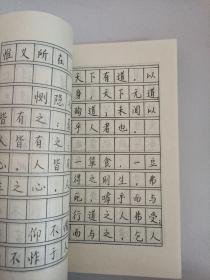 惟义所在
恻隐
皆有之；
人皆有之
，人皆
之心，人
仰不
不怍于
天下有道，以
身，天下无道
殉道，未闻以
乎人者也。
一箪食，一豆
得之则生，弗
死，嘑尔而与
行道之人弗受
而与之，乞人